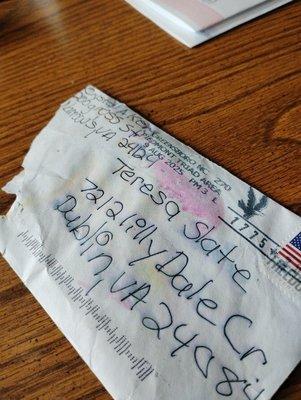 GREENSBORO NC 270
PIEDMONT TRIAD AREA
AUG 2025 PM 3 L
Teresa Slate
7212 Lilly Dale Cr
Dublin, VA 24084
1775